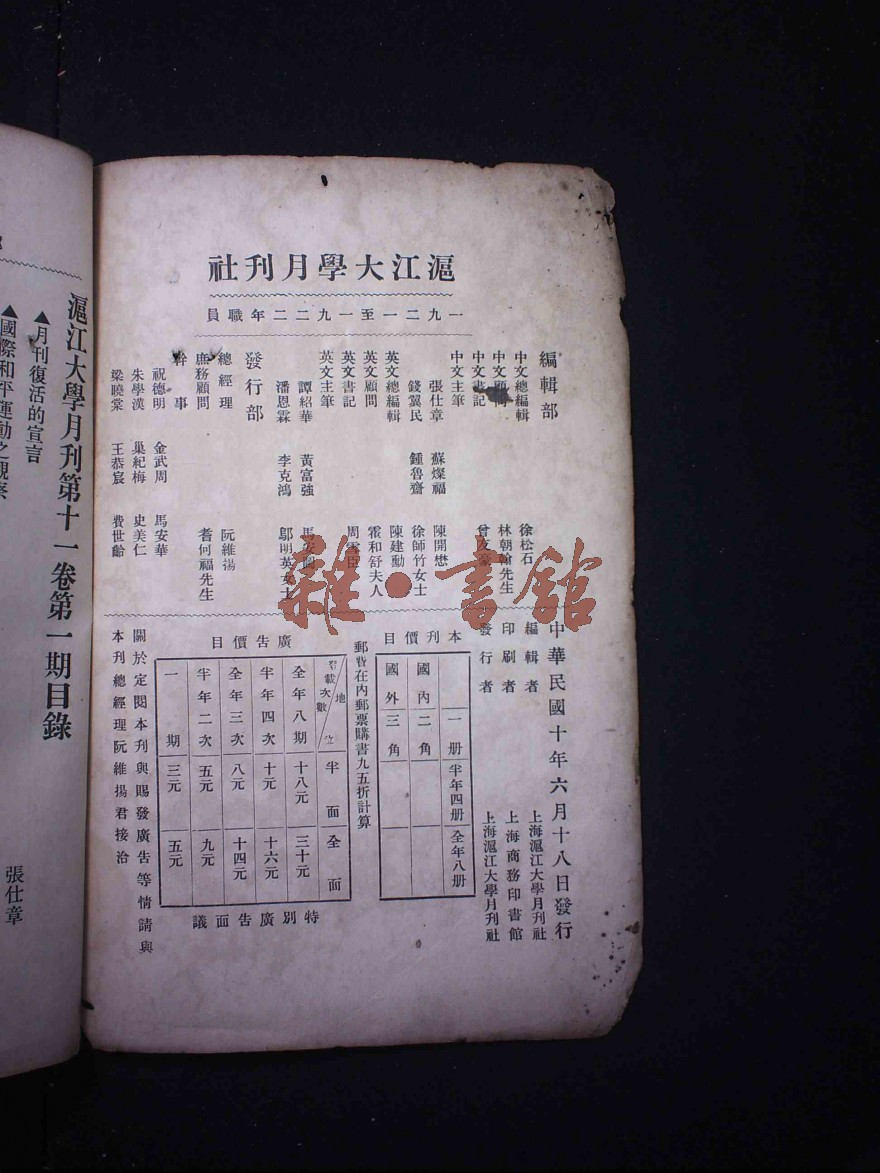 滬江大學月刊社
一九二一至一九二二年職員
編輯部
中文總編輯 徐松石
中文顧問 林朝翰先生
中文書記 曾友豪
中文主筆
張仕章 蘇燦福 陳開懋
錢翼民 鍾魯齋 徐師竹女士
英文總編輯 陳建勳
英文顧問 霍和舒夫人
英文書記 周雩臣
英文主筆
譚紹華 黃富強
潘恩霖 李克鴻 鄔明英女士
發行部
總經理 阮維揚
庶務顧問 耆何福先生
幹事
祝德明 金武周 馬安華
朱學漢 巢紀梅 史美仁
梁曉棠 王恭宸 費世齡
中華民國十年六月十八日發行
編輯者 上海滬江大學月刊社
印刷者 上海商務印書館
發行者 上海滬江大學月刊社
本刊價目
一册 半年四册 全年八册
國內 二角
國外 三角
郵費在內郵票購書九五折計算
廣告價目
登載次數 地位 半面 全面
全年八期 十八元 三十元
半年四次 十元 十六元
全年三次 八元 十四元
半年二次 五元 九元
一期 三元 五元
特別廣告面議
關於定閱本刊與賜發廣告等情請與
本刊總經理阮維揚君接洽
滬江大學月刊第十一卷第一期目錄
▲月刊復活的宣言 張仕章
▲國際和平運動之觀察
雜·書館